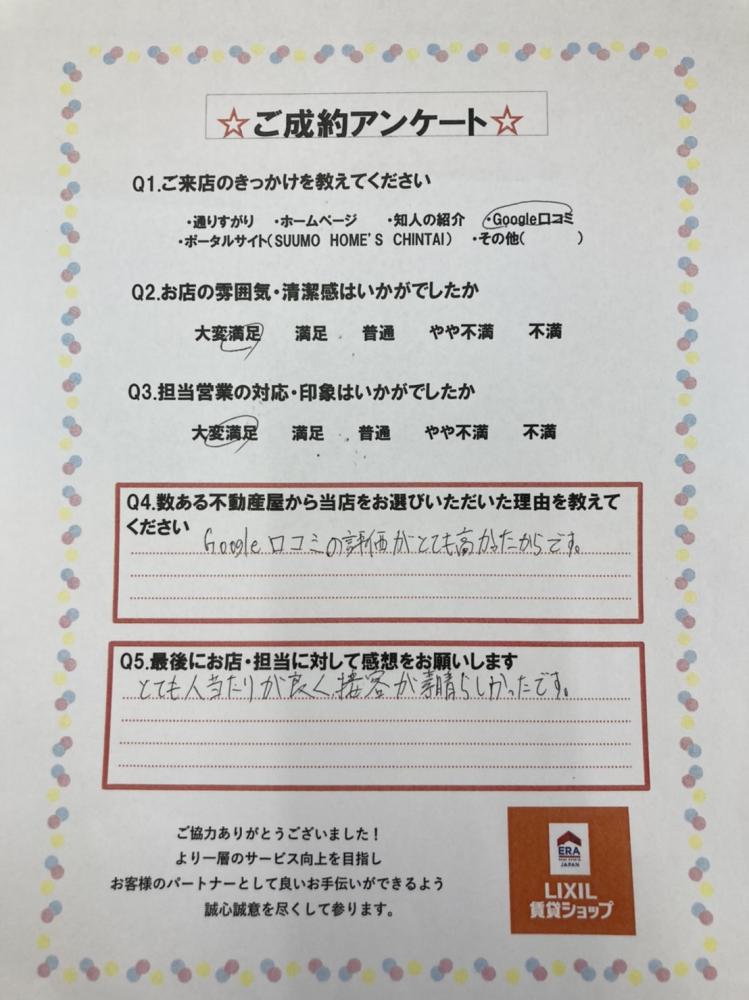 ☆ご成約アンケート☆
Q1.ご来店のきっかけを教えてください
・通りすがり ・ホームページ ・知人の紹介 ・Google口コミ
・ポータルサイト(SUUMO HOME'S CHINTAI) ・その他( )
Q2.お店の雰囲気・清潔感はいかがでしたか
大変満足 満足 普通 やや不満 不満
Q3.担当営業の対応・印象はいかがでしたか
大変満足 満足 普通 やや不満 不満
Q4.数ある不動産屋から当店をお選びいただいた理由を教えて
ください
Google 口コミの評価がとても高かったからです。
Q5.最後にお店・担当に対して感想をお願いします
とても人当たりが良く、接客が素晴らしかったです。
ご協力ありがとうございました！
より一層のサービス向上を目指し
お客様のパートナーとして良いお手伝いができるよう
誠心誠意を尽くして参ります。
ERA
REAL ESTATE
JAPAN
LIXIL
賃貸ショップ